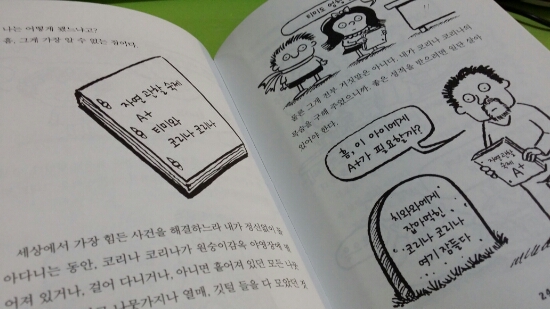 나는 어떻게 됐느냐고?
흠, 그게 가장 알 수 없는 일이다.
자연 관찰 숙제
A+
티미와
코리나 코리나
세상에서 가장 힘든 사건을 해결하느라 내가 정신없이 돌
아다니는 동안, 코리나 코리나가 원숭이감옥 야영장에
어져 있거나, 걸어 다니거나, 아니면 흩어져 있던 모든
나뭇가지나 열매, 깃털 들을 다 모았던 것
물론 그게 전부 거짓말은 아니다. 내가 코리나 코리나의
목숨을 구해 주었으니까. 좋은 성적을 받으려면 일단 살아
있어야 한다.
흠, 이 아이에게
A+가 필요할까?
자연 관찰
숙제
A+
치와와에게
잡아먹힌
코리나 코리나
여기 잠들다